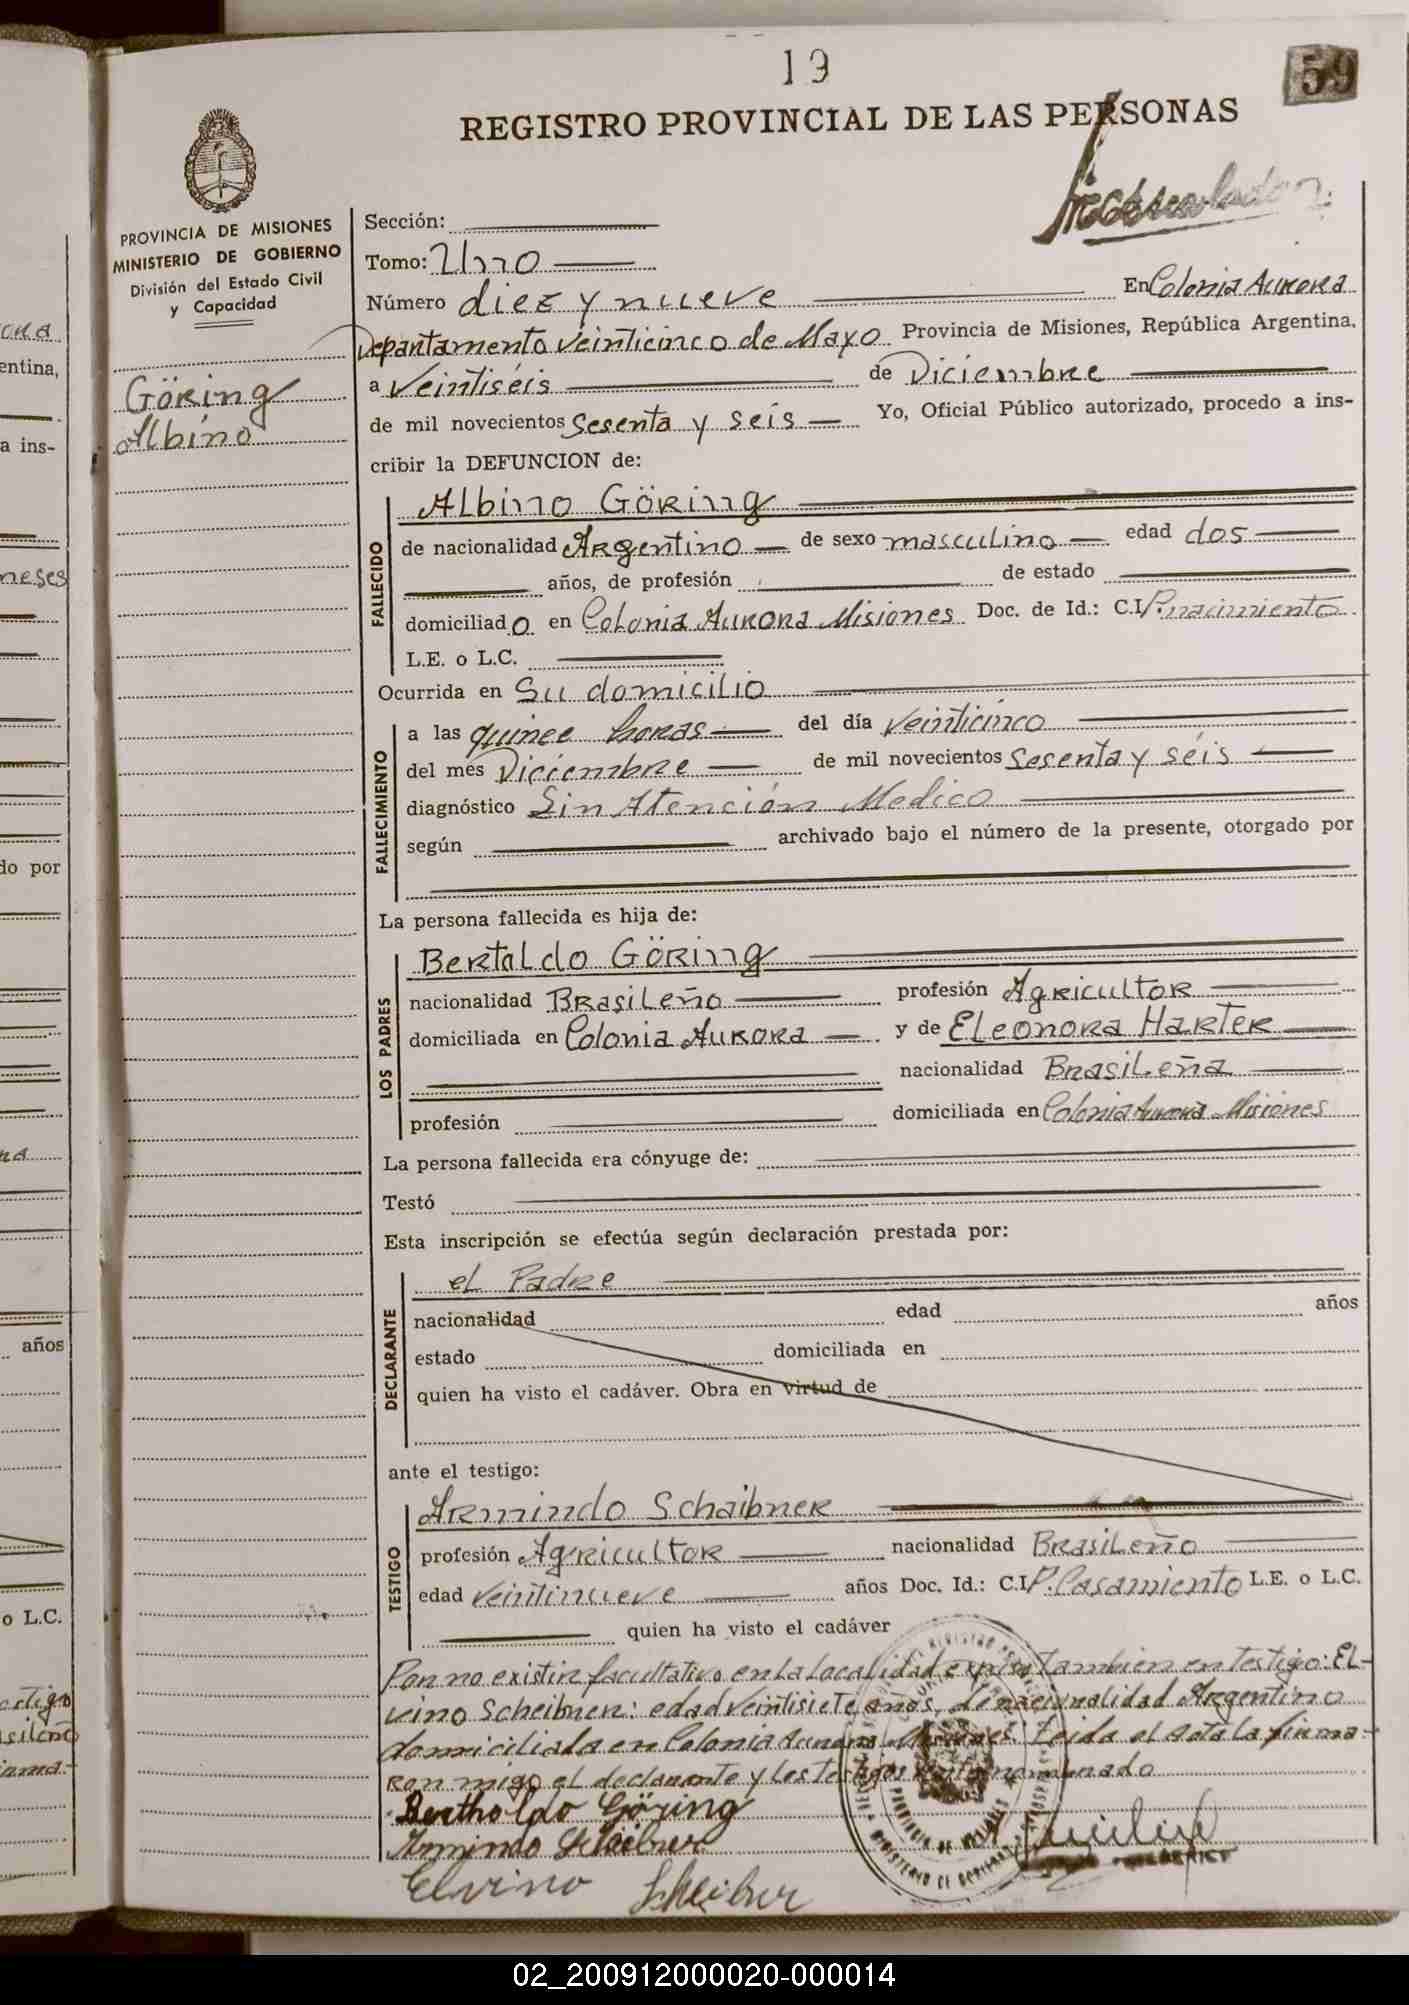 19
59
REGISTRO PROVINCIAL DE LAS PERSONAS
PROVINCIA DE MISIONES
MINISTERIO DE GOBIERNO
División del Estado Civil
y Capacidad
Göring
Albino
Sección:
Tomo: Uno
Número diez y nueve En Colonia Aurora
Departamento veinticinco de Mayo Provincia de Misiones, República Argentina,
a veintiséis de Diciembre
de mil novecientos sesenta y seis Yo, Oficial Público autorizado, procedo a ins-
cribir la DEFUNCION de:
FALLECIDO
Albino Göring
de nacionalidad Argentino de sexo masculino edad dos
años, de profesión de estado
domiciliado en Colonia Aurora Misiones Doc. de Id.: C.I. P. nacimiento
L.E. o L.C.
Ocurrida en Su domicilio
FALLECIMIENTO
a las quince horas del día veinticinco
del mes Diciembre de mil novecientos sesenta y seis
diagnóstico Sin Atención Medico
según archivado bajo el número de la presente, otorgado por
La persona fallecida es hija de:
LOS PADRES
Bertaldo Göring
nacionalidad Brasileño profesión Agricultor
domiciliada en Colonia Aurora y de Eleonora Harter
nacionalidad Brasileña
profesión domiciliada en Colonia Aurora Misiones
La persona fallecida era cónyuge de:
Testó
Esta inscripción se efectúa según declaración prestada por:
DECLARANTE
el Padre
nacionalidad edad años
estado domiciliada en
quien ha visto el cadáver. Obra en virtud de
ante el testigo:
TESTIGO
Armindo Schaibner
profesión Agricultor nacionalidad Brasileño
edad veintinueve años Doc. Id.: C.I. P. Casamiento L.E. o L.C.
quien ha visto el cadáver
Por no existir facultativo en la localidad expuso tambien en testigo: El-
vino Scheibner: edad veintisiete años, de nacionalidad Argentino
domiciliada en Colonia Aurora Misiones: Leida el acta la firma-
ron migo el declarante y los testigos
Bertholdo Göring
Armindo Scheibner
Elvino Scheibner
cna
entina,
a ins-
meses
do por
na
años
o L.C.
estigo
sileño
02_200912000020-000014